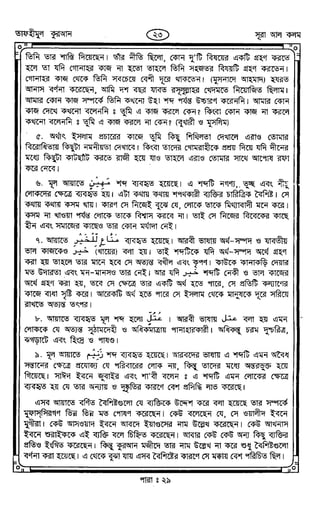 তাফহীমুল কুরআন
২৩
সূরা আল কলম
তিনি তার শাস্তি দিয়েছেন। তাঁর নীতি ছিলো, কোন দু'টি বিষয়ের একটি গ্রহণ করতে
হলে তা যদি গোনাহর কাজ না হতো তাহলে তিনি সহজতর বিষয়টি গ্রহণ করতেন।
গোনাহর কাজ থেকে তিনি সবচেয়ে বেশী দূরে থাকতেন। (মুসনাদে আহমাদ) হযরত
আনাস বর্ণনা করেছেন, আমি দশ বছর যাবত রসূলুল্লাহর খেদমতে নিয়োজিত ছিলাম।
আমার কোন কাজ সম্পর্কে তিনি কখনো উহ! শব্দ পর্যন্ত উচ্চারণ করেননি। আমার কোন
কাজ দেখে কখনো বলেননি : তুমি এ কাজ করলে কেন? কিংবা কোন কাজ না করলে
কখনো বলেননি : তুমি এ কাজ করলে না কেন? (বুখারী ও মুসলিম)
৫. অর্থাৎ ইসলাম প্রচারের কাজে তুমি কিছু শিথিলতা দেখালে এরাও তোমার
বিরোধিতায় কিছুটা নমনীয়তা দেখাবে। কিংবা তাদের গোমরাহীকে প্রশ্রয় দিয়ে যদি দীনের
মধ্যে কিছুটা কাটছাঁট করতে রাজী হয়ে যাও তাহলে এরাও তোমার সাথে আপোষ রফা
করে নেবে।
৬. মূল আয়াতে مَهِيْنٍ শব্দ ব্যবহৃত হয়েছে। এ শব্দটি নগণ্য, তুচ্ছ এবং নীচু
লোকদের ক্ষেত্রে ব্যবহৃত হয়। এটা কথায় কথায় শপথকারী ব্যক্তির চারিত্রিক বৈশিষ্ট। সে
কথায় কথায় কসম খায়। কারণ সে নিজেই বুঝে যে, লোকে তাকে মিথ্যাবাদী মনে করে।
কসম না খাওয়া পর্যন্ত লোকে তাকে বিশ্বাস করবে না। তাই সে নিজের বিবেকের কাছে
হীন এবং সমাজের কাছেও তার কোন মর্যাদা নেই।
৭. আয়াতে مَنَّاعٍ لِّلْخَيْرِ ব্যবহৃত হয়েছে। আরবী ভাষায় অর্থ-সম্পদ ও যাবতীয়
ভাল কাজকেও خير (খায়ের) বলা হয়। তাই শব্দটিকে যদি অর্থ-সম্পদ অর্থে গ্রহণ
করা হয় তাহলে তার মানে হবে সে অত্যন্ত বখীল এবং কৃপণ। কাউকে কানাকড়ি দেয়ার
মত উদারতা এবং মন-মানসও তার নেই। আর যদি خير শব্দটি নেকী ও ভাল কাজের
অর্থে গ্রহণ করা হয়, তবে সে ক্ষেত্রে তার একটি অর্থ হতে পারে, সে প্রতিটি কল্যাণের
কাজে বাধা সৃষ্টি করে। আরেকটি অর্থ হতে পারে সে ইসলাম থেকে মানুষকে দূরে সরিয়ে
রাখতে অত্যন্ত তৎপর।
৮. আয়াতে ব্যবহৃত মূল শব্দ হলো عُتُلٍّ । আরবী ভাষায় عُتُلّ বলা হয় এমন
লোককে যে অত্যন্ত সুঠামদেহী ও অধিকমাত্রায় পানাহারকারী। অধিকন্তু চরম দুশ্চরিত্র,
ঝগড়াটে এবং হিংস্র ও পাষণ্ড।
৯. মূল আয়াতে زَنِيْمٍ শব্দ ব্যবহৃত হয়েছে। আরবদের ভাষায় এ শব্দটি এমন অবৈধ
সন্তানের ক্ষেত্রে প্রযোজ্য যে পরিবারের লোক নয়, কিন্তু তাদের মধ্যে অন্তরভুক্ত হয়ে
গিয়েছে। সাঈদ ইবনে জুবাইর এবং শা'বী বলেন : এ শব্দটি এমন লোকের ক্ষেত্রে
ব্যবহৃত হয় যে তার অন্যায় ও দুষ্কৃতির কারণে বেশ প্রসিদ্ধি লাভ করেছে।
এসব আয়াতে বর্ণিত বৈশিষ্টগুলো যে ব্যক্তিকে উদ্দেশ করে বলা হয়েছে তার সম্পর্কে
মুফাসসিরগণ ভিন্ন ভিন্ন মত পোষণ করেছেন। কেউ বলেছেন যে, সে ওয়ালীদ ইবনে
মুগীরা। কেউ আসওয়াদ ইবনে আবদে ইয়াগুসের নাম উল্লেখ করেছেন। কেউ আখনাস
ইবনে শুরাইককে এই ব্যক্তি বলে চিহ্নিত করেছেন। আবার কেউ কেউ অন্য কিছু ব্যক্তির
প্রতিও ইংগিত করেছেন। কিন্তু কুরআন মজীদে তার নাম উল্লেখ না করে শুধু বৈশিষ্টগুলো
বর্ণনা করা হয়েছে। এ থেকে বুঝা যায় এসব বৈশিষ্টের কারণে সে মক্কায় বেশ পরিচিত ছিল।
পারা : ২৯